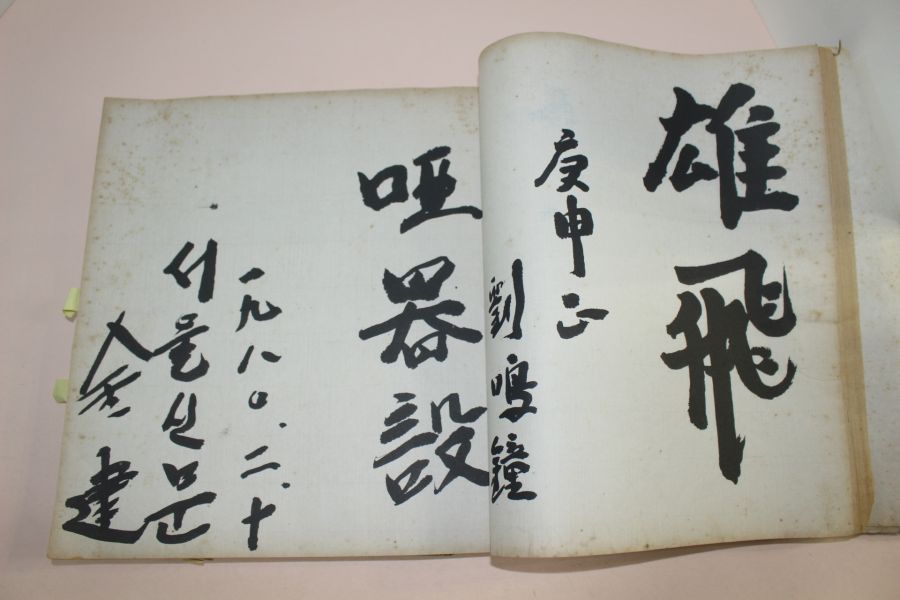 雄飛
庚申 正
劉鳴鐘
啞器設
一九八〇.二.十
서울신문